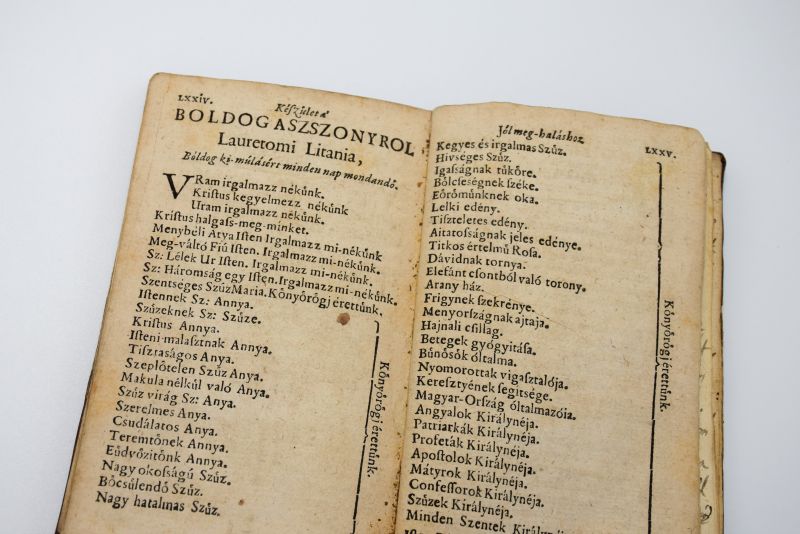 LXXIV.
Kéſzület a'
BOLDOGASZSZONYROL
Lauretomi Litania,
Bóldog ki-múláſért minden nap mondandó.
VRam irgalmazz nékúnk.
Kristus kegyelmezz nékúnk
Uram irgalmazz nékúnk.
Kristus halgaſs-meg minket.
Menybéli Atya Iſten Irgalmazz mi-nékúnk
Meg-váltó Fiú Iſten. Irgalmazz mi-nékúnk.
Sz: Lélek Ur Iſten. Irgalmazz mi-nékúnk.
Sz: Háromság egy Iſten. Irgalmazz mi-nékúnk.
Szentseges SzúzMaria. Kőnyőrőgj érettúnk.
Iſtennek Sz: Annya.
Szúzeknek Sz: Szúze.
Kriſtus Annya.
Iſteni-malaſztnak Annya.
Tiſztaságos Anya.
Szeplőtelen Szúz Anya.
Makula nélkúl való Anya.
Szúz virág Sz: Anya.
Szerelmes Anya.
Csudálatos Anya.
Teremtőnek Annya.
Eúdvőzitőnk Annya.
Nagy okoſságú Szúz.
Bőcsúlendő Szúz.
Nagy hatalmas Szúz.
Kőnyőrőgj érettúnk.
Jól meg-haláshoz
LXXV.
Kegyes és irgalmas Szúz.
Hivséges Szúz.
Igaſságnak túkőre.
Bőlcſeségnek ſzéke.
Eőrőmúnknek oka.
Lelki edény.
Tiſzteletes edény.
Aitatoſságnak jeles edénye.
Titkos értelmű Roſa.
Dávidnak tornya.
Elefánt cſontból való torony.
Arany ház.
Frigynek ſzekrénye.
Menyorſzágnak ajtaja.
Hajnali cſillag.
Betegek gyógyitáſa.
Búnősők óltalma.
Nyomorottak vigaſztalója.
Keresztyének ſegitsége.
Magyar-Orſzág óltalmazóia.
Angyalok Királynéja.
Patriarkák Királynéja.
Proféták Királynéja.
Apoſtolok Királynéja.
Mátyrok Királynéja.
Confeſſorok Királynéja.
Szúzek Királynéja.
Minden Szentek Királynéja.
Kőnyőrőgj érettúnk.